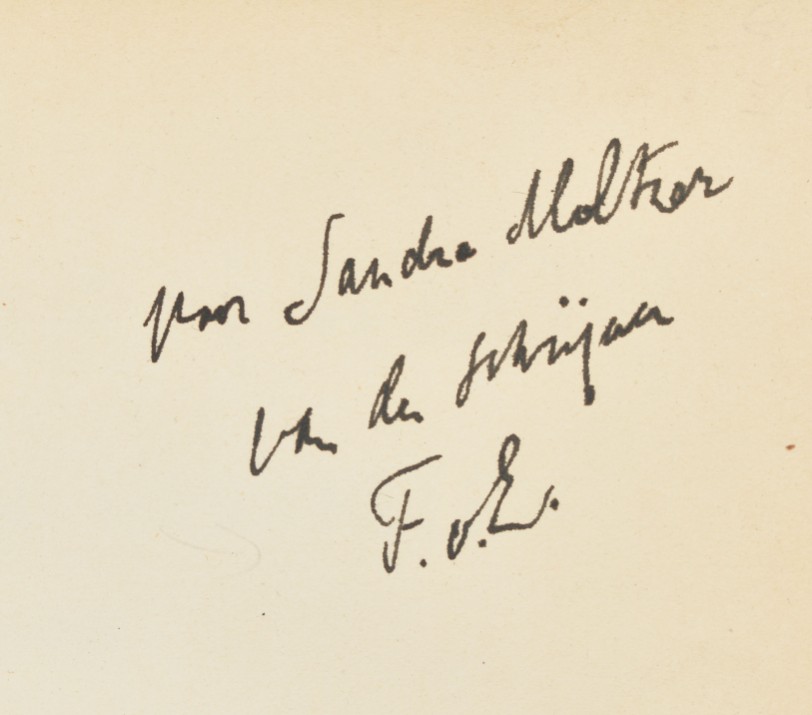 voor Sandra Moltzer
van den schrijver
F.v.E.